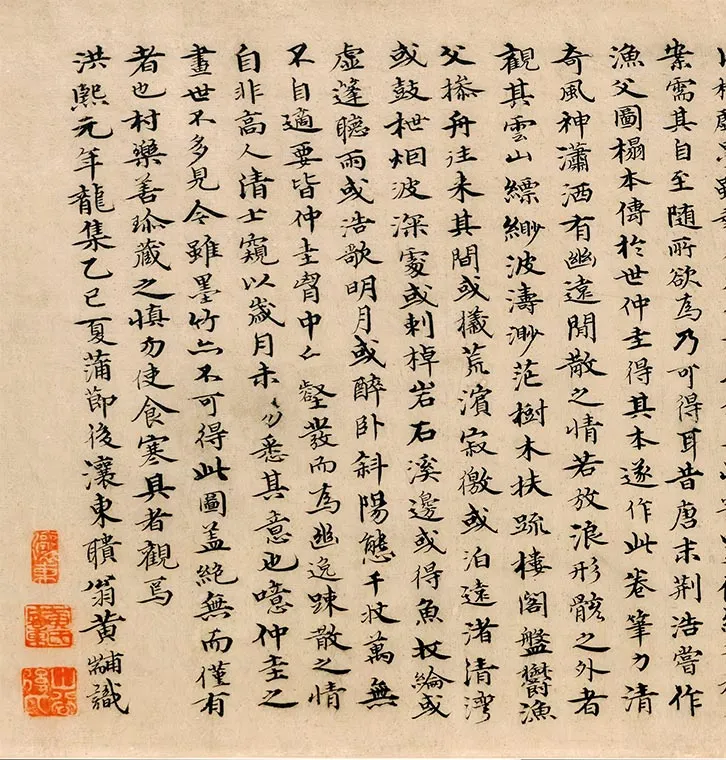 案需其自至随所欲為乃可得耳昔唐末荆浩嘗作
漁父圖榻本傳於世仲圭得其本遂作此卷筆力清
奇風神瀟洒有幽遠閒散之情若放浪形骸之外者
觀其雲山縹緲波濤渺茫樹木扶疏樓閣盤欝漁
父㯭舟往來其間或檥荒濱寂徼或泊遠渚清灣
或鼓枻烟波深處或刺棹岩石溪邊或得魚投綸或
虛蓬聽雨或浩歌明月或醉卧斜陽態千狀萬無
不自適要皆仲圭胷中丘壑發而為幽逸踈散之情
自非高人清士窺以歲月未易悉其意也噫仲圭之
畫世不多見今雖墨竹亦不可得此圖盖絕無而僅有
者也村樂善珎藏之慎勿使食寒具者觀焉
洪熙元年龍集乙巳夏蒲節後瀼東瞶翁黄黼識